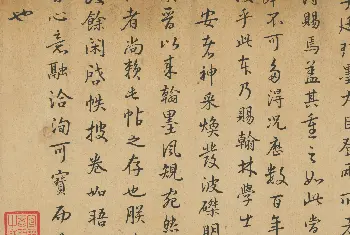 得賜焉蓋其重之如此嘗
不可多得況歷數百年
後乎此本乃賜翰林學士
安者神采煥發波磔明
晉以来翰墨風規宛然
者尚賴此帖之存也朕
餘閑啓帙披卷如晤
心意融洽洵可寶而
也